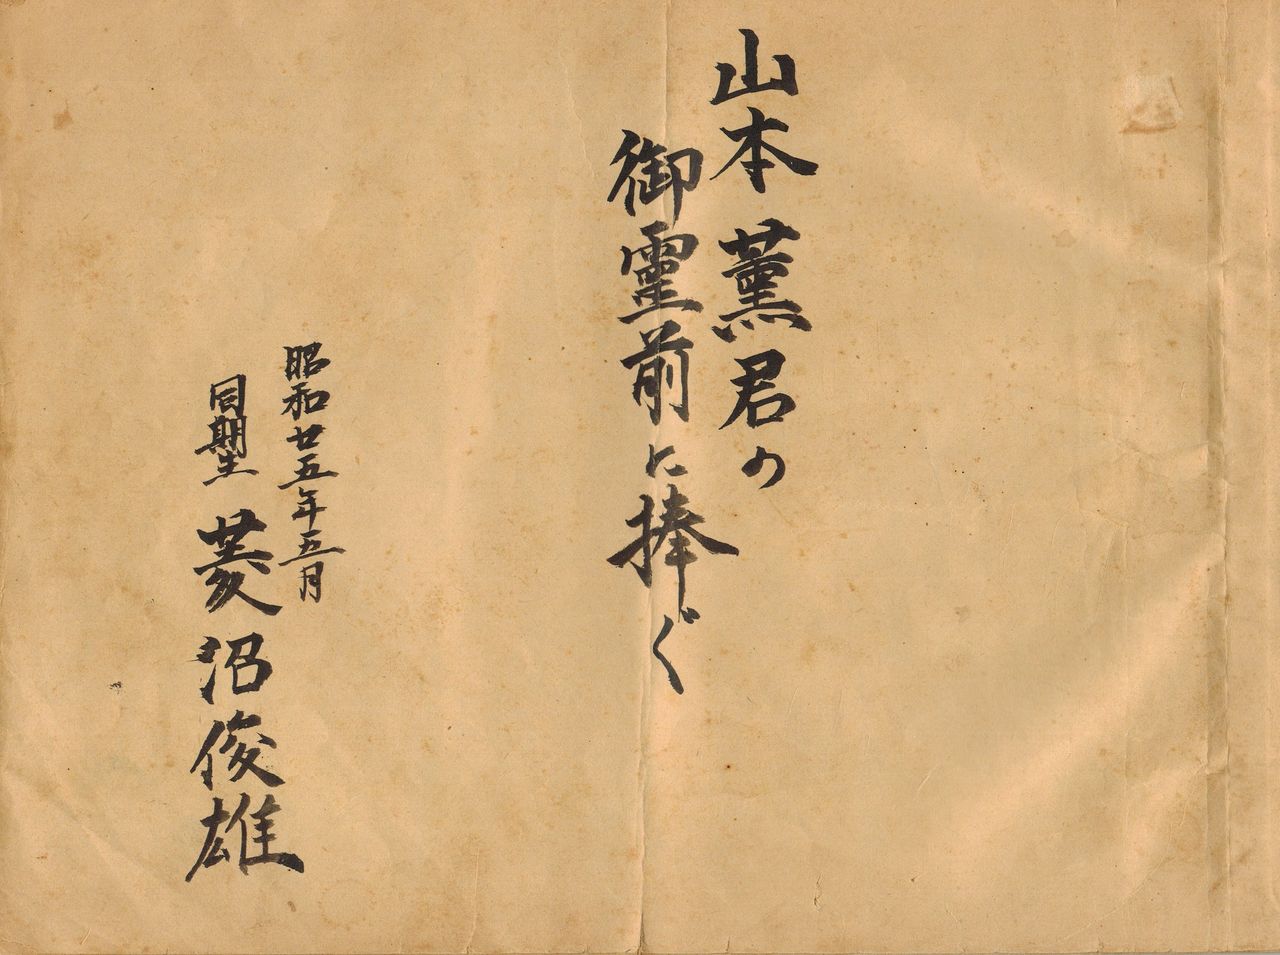 山本薫君の
御霊前に捧ぐ
昭和廿五年五月
同期生 菱沼俊雄